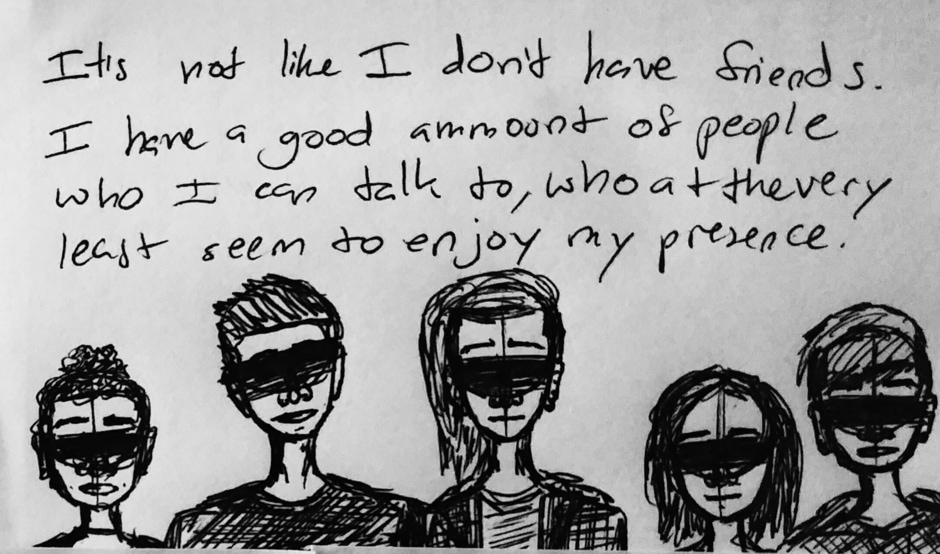 It's not like I don't have friends.
I have a good ammount of people
who I can talk to, who at the very
least seem to enjoy my presence.